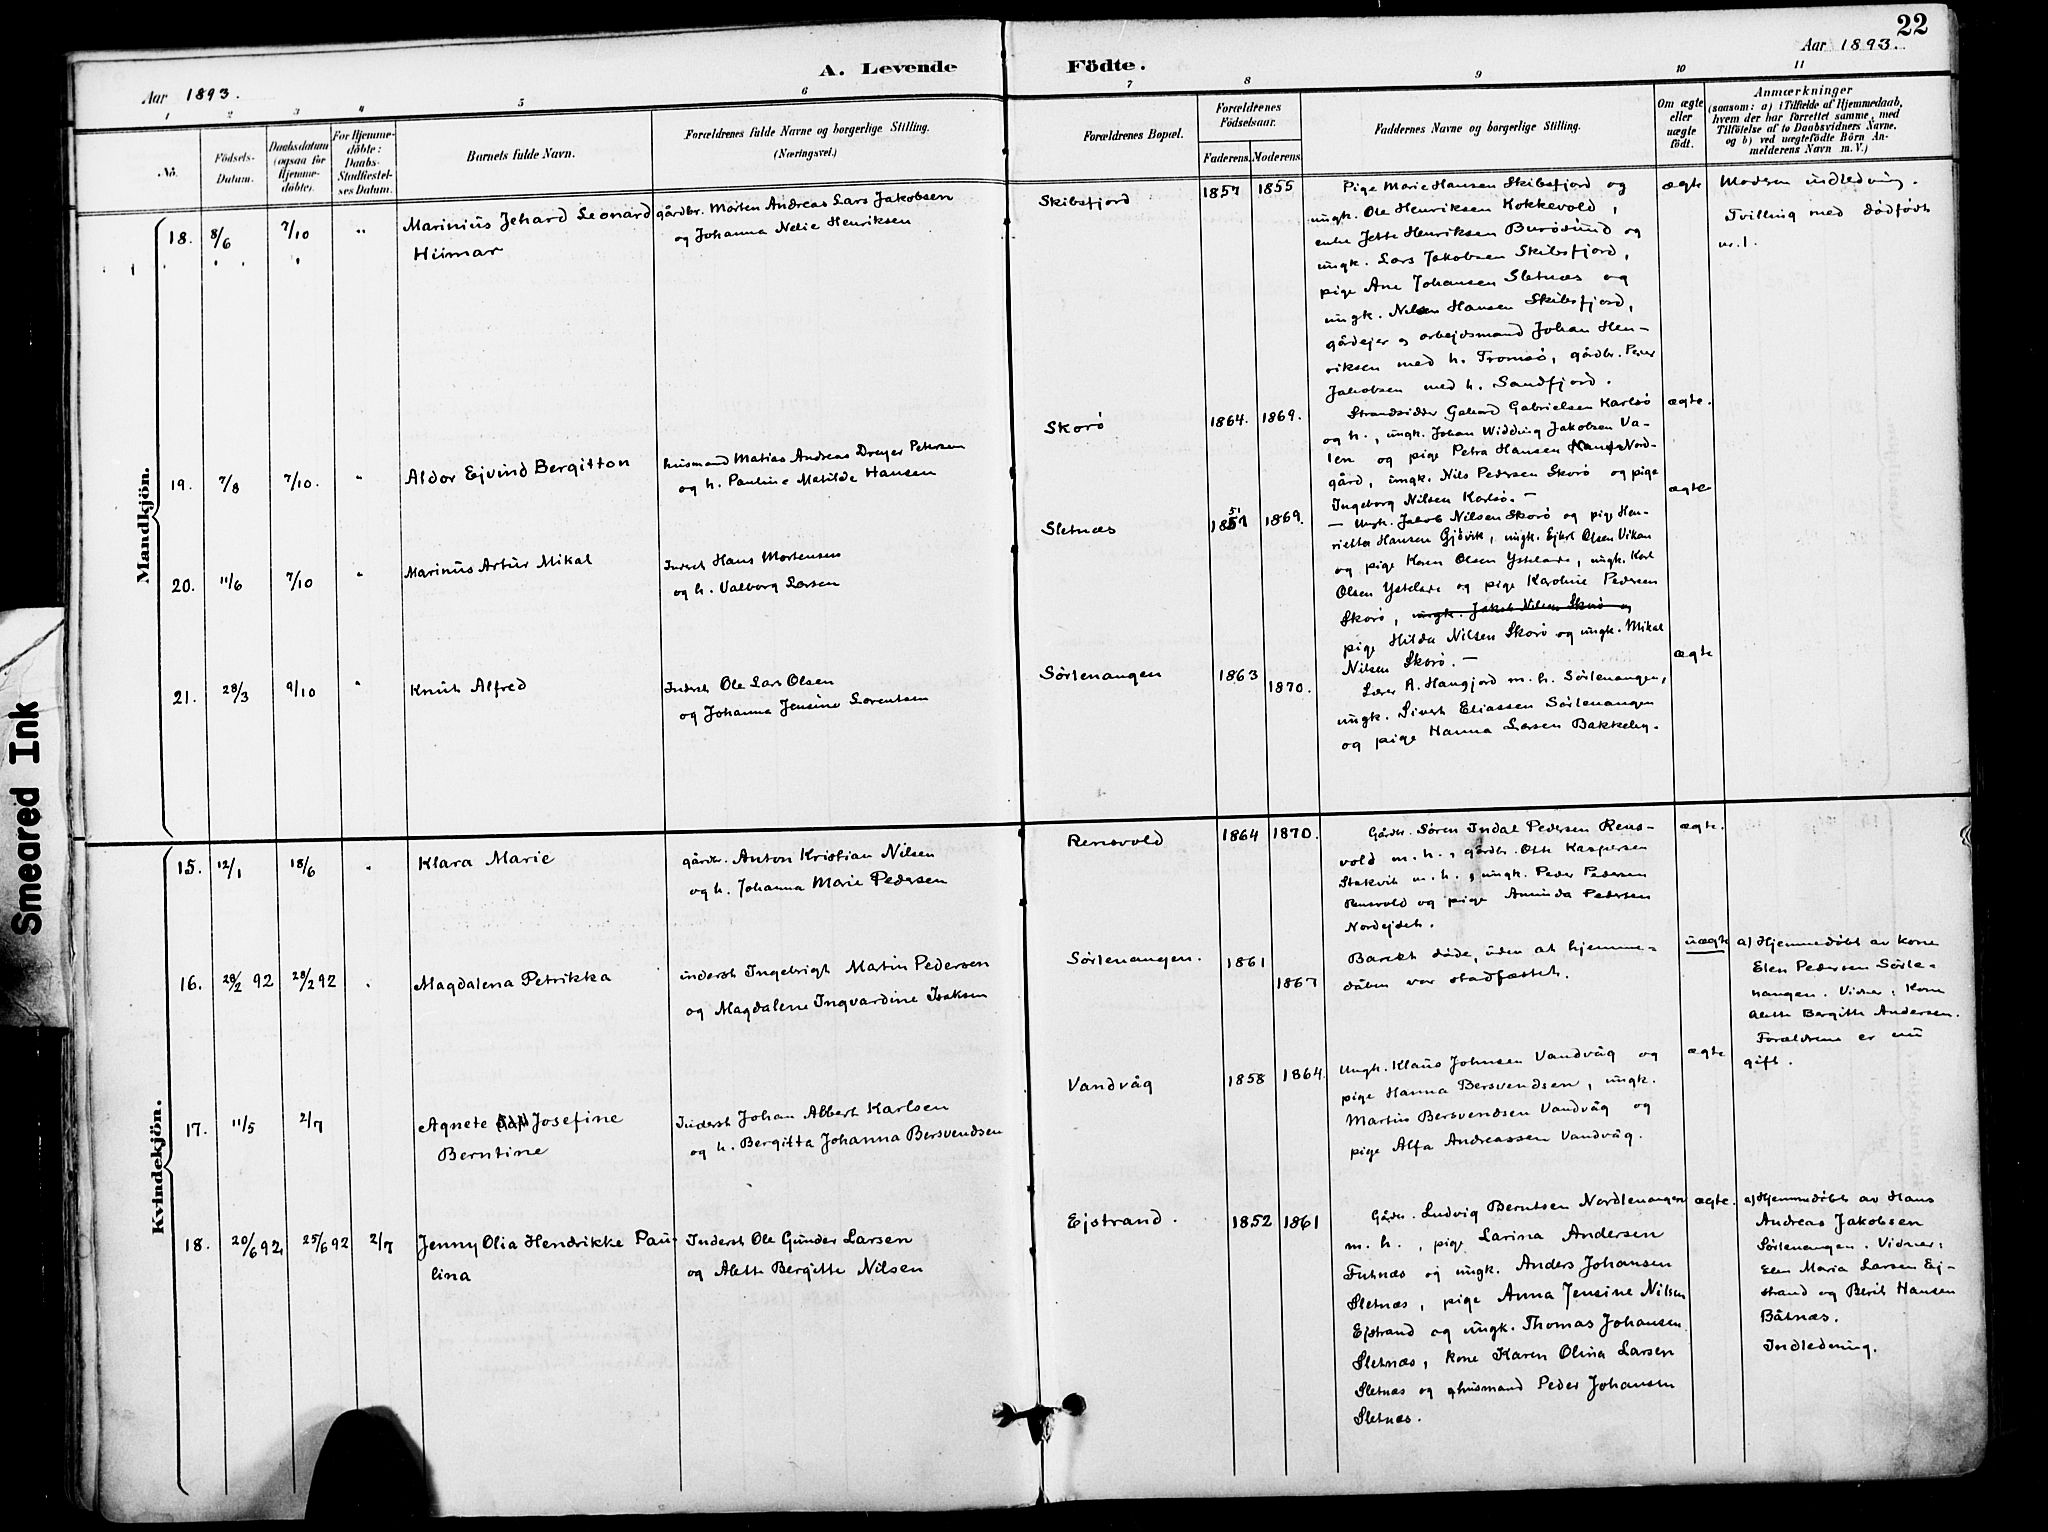 22
Aar 1893.
Aar 1893.
A. Levende Födte.
1 2 3 4 5 6 7 8 9 10 11
No.
Födsels-
Datum.
Daabsdatum
(ogsaa for
Hjemme-
döbte).
For Hjemme-
döbte:
Daabs-
Stadfæstel-
ses Datum.
Barnets fulde Navn.
Forældrenes fulde Navne og borgerlige Stilling.
(Næringsvei.)
Forældrenes Bopæl.
Forældrenes
Födselsaar.
Faderens. Moderens.
Faddernes Navne og borgerlige Stilling.
Om ægte
eller
uægte
født.
Anmærkninger
(saasom: a) i Tilfælde af Hjemmedaab,
hvem der har forrettet samme, med
Tilföielse af to Daabsvidners Navne.
og b) ved uægtefödte Börn An-
melderens Navn m. V.)
Mandkjön.
18. 8/6 7/10 "
Marinius Jehard Leonard
Hilmar
gårdbr. Morten Andreas Lars Jakobsen
og Johanna Nelie Henriksen
Skibsfjord
1857 1855
Pige Marie Hansen Skibsfjord og
ungk. Ole Henriksen Kokkevold,
enke Jette Henriksen Burøsund og
ungk. Lars Jakobsen Skibsfjord,
pige Ane Johansen Sletnæs og
ungk. Nilsen Hansen Skibsfjord,
gårdejer og arbejdsmand Johan Hen-
riksen med h. Tromsø, gårdbr. Peder
Jakobsen med h. Sandfjord.
ægte
Modern indledning.
Tvilling med dødfødt
nr. 1.
19. 7/8 7/10. "
Aldor Ejvind Bergitton
husmand Matias Andreas Dreyer Petersen
og h. Pauline Matilde Hansen
Skorø
1864. 1869.
Strandsidder Gahard Gabrielsen Karlsø
og h., ungk. Johan Widding Jakobsen Va-
len og pige Petra Hansen Nord-
gård, ungk. Nils Pedersen Skorø og pige
Ingeborg Nilsen Karlsø. -
ægte.
20. 11/6 7/10 "
Marinus Artur Mikal
Inderst Hans Mortensen
og h. Valborg Larsen
Sletnæs
51
1857 1869.
- Ungk. Jakob Nilsen Skorø og pige Hen-
riette Hansen Gjøvik, ungk. Ejkrl Olsen Vikan
og pige Karen Olsen Ystelare, ungk. Karl
Olsen Ystelare og pige Karoline Pedersen
Skorø, ungk. Jakob Nilsen Skorø og
pige Hilda Nilsen Skorø og ungk. Mikal
Nilsen Skorø. -
ægte
21. 28/3 9/10 "
Knut Alfred
Inderst Ole Lars Olsen
og Johanna Jensine Lorentsen
Sørlenangen
1863 1870.
Lærer A. Hangjord m. h. Sørlenangen,
ungk. Sivert Eliassen Sørlenangen
og pige Hanna Larsen Bakkeby.
ægte
Kvindekjön.
15. 12/1 18/6 "
Klara Marie
gårdbr. Anton Kristian Nilsen
og h. Johanna Marie Pedersen
Rensvold
1864 1870.
Gårdbr. Søren Indal Pedersen Rens-
vold m. h., gårdbr. Otth Kaspersen
Stakvik m. h., ungk. Peder Pedersen
Rensvold og pige Aminda Pedersen
Nordejdet.
ægte.
16. 28/2 92 28/2 92 "
Magdalena Petrikka
inderst Ingebrigt Martin Pedersen
og Magdalene Ingvardine Isaksen
Sørlenangen.
1861 1867
Barett døde, uden at hjemme-
dåben var stadfæstet.
uægte
a) Hjemmedøbt av kone
Elen Pedersen Sørle-
nangen. Vidner: Kone
Alette Bergitte Andersen.
Forældrene er nu
gift.
17. 11/5 2/7
Agnete Josefine
Berntine
Inderst Johan Albert Karlsen
og h. Bergitta Johanna Bersvendsen
Vandvåg
1858 1864.
Ungk. Klaus Johnsen Vandvåg og
pige Hanna Bersvendsen, ungk.
Martin Bersvendsen Vandvåg og
pige Alfa Andreassen Vandvåg.
ægte
18. 20/6 92 25/6 92 2/7
Jenny Olia Hendrikke Pau-
lina
Inderst Ole Gunder Larsen
og Alette Bergitte Nilsen
Ejstrand.
1852 1861
Gårdbr. Ludvig Berntsen Nordlenangen
m. h., pige Larina Andersen
Futnæs og ungk. Anders Johansen
Sletnæs, pige Anna Jensine Nilsen
Ejstrand og ungk. Thomas Johansen
Sletnæs, kone Karen Olina Larsen
Sletnæs og husmand Peder Johansen
Sletnæs.
ægte.
a) Hjemmedøbt av Hans
Andreas Jakobsen
Sørlenangen. Vidner:
Elen Maria Larsen Ej-
strand og Berit Hansen
Båtnæs.
Indledning.
Smeared Ink